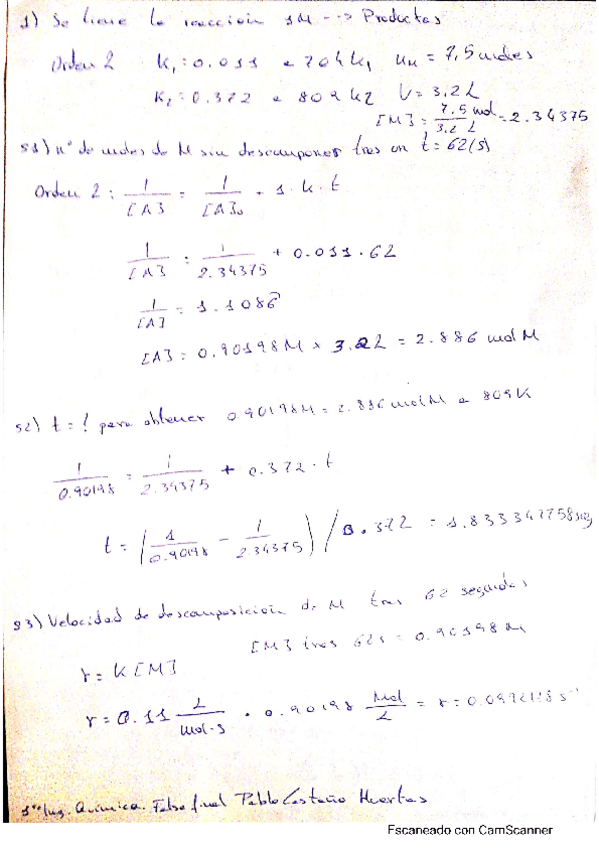 1) Se tiene la reacción 1M --> Productos
Orden 2 K₁: 0.011 a 704K, nM = 7,5 moles
K₂: 0.372 a 809 K2 V = 3.2 L
[M]: 7.5 mol / 3.2 L = 2.34375
51) nº de moles de M sin descomponer tras un t = 62(s)
Orden 2: 1/[A] = 1/[A]₀ + 1·k·t
1/[A] : 1/2.34375 + 0.011·62
1/[A] = 1.1086
[A]: 0.90198M × 3.2L = 2.886 mol M
52) t = ? para obtener 0.90198M = 2.886 mol M a 809K
1/0.90198 = 1/2.34375 + 0.372·t
t = (1/0.90198 - 1/2.34375) / 0.372 = 1.833347758 seg
93) Velocidad de descomposición de M tras 62 segundos
r = K[M] [M] tras 62s = 0.90198 M
r = 0.11 L/mol·s · 0.90198 mol/L = r = s⁻¹
Ing. Química. Falso final Pablo Castaño Huertas
Escaneado con CamScanner